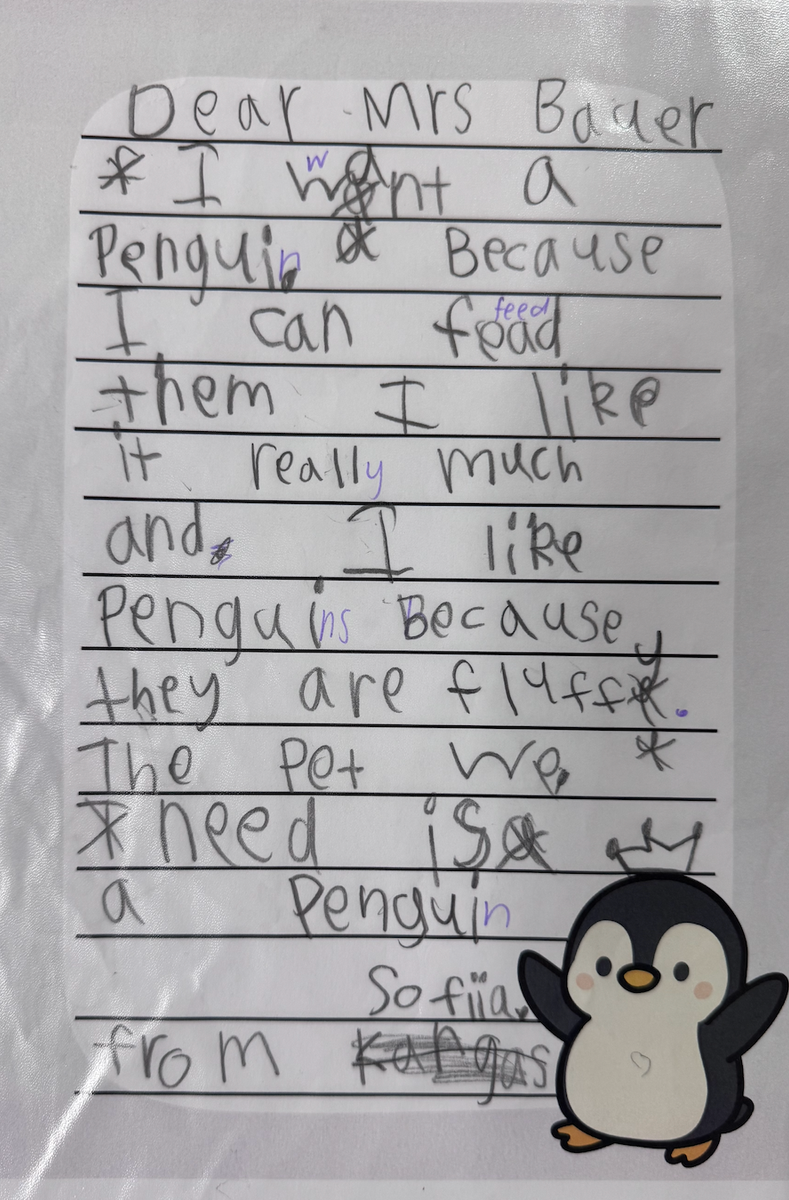 Dear Mrs Bauer
* I want a
Penguin * Because
I can fead feed
them I like
it really much
and. I like
Penguins Because
they are fluffy.
The Pet We *
* need is
a Penguin
Sofiia.
from Kangas